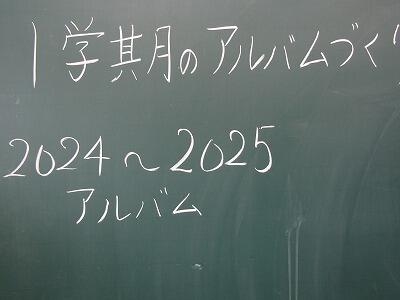 1学期のアルバムづくり
2024～2025
アルバム